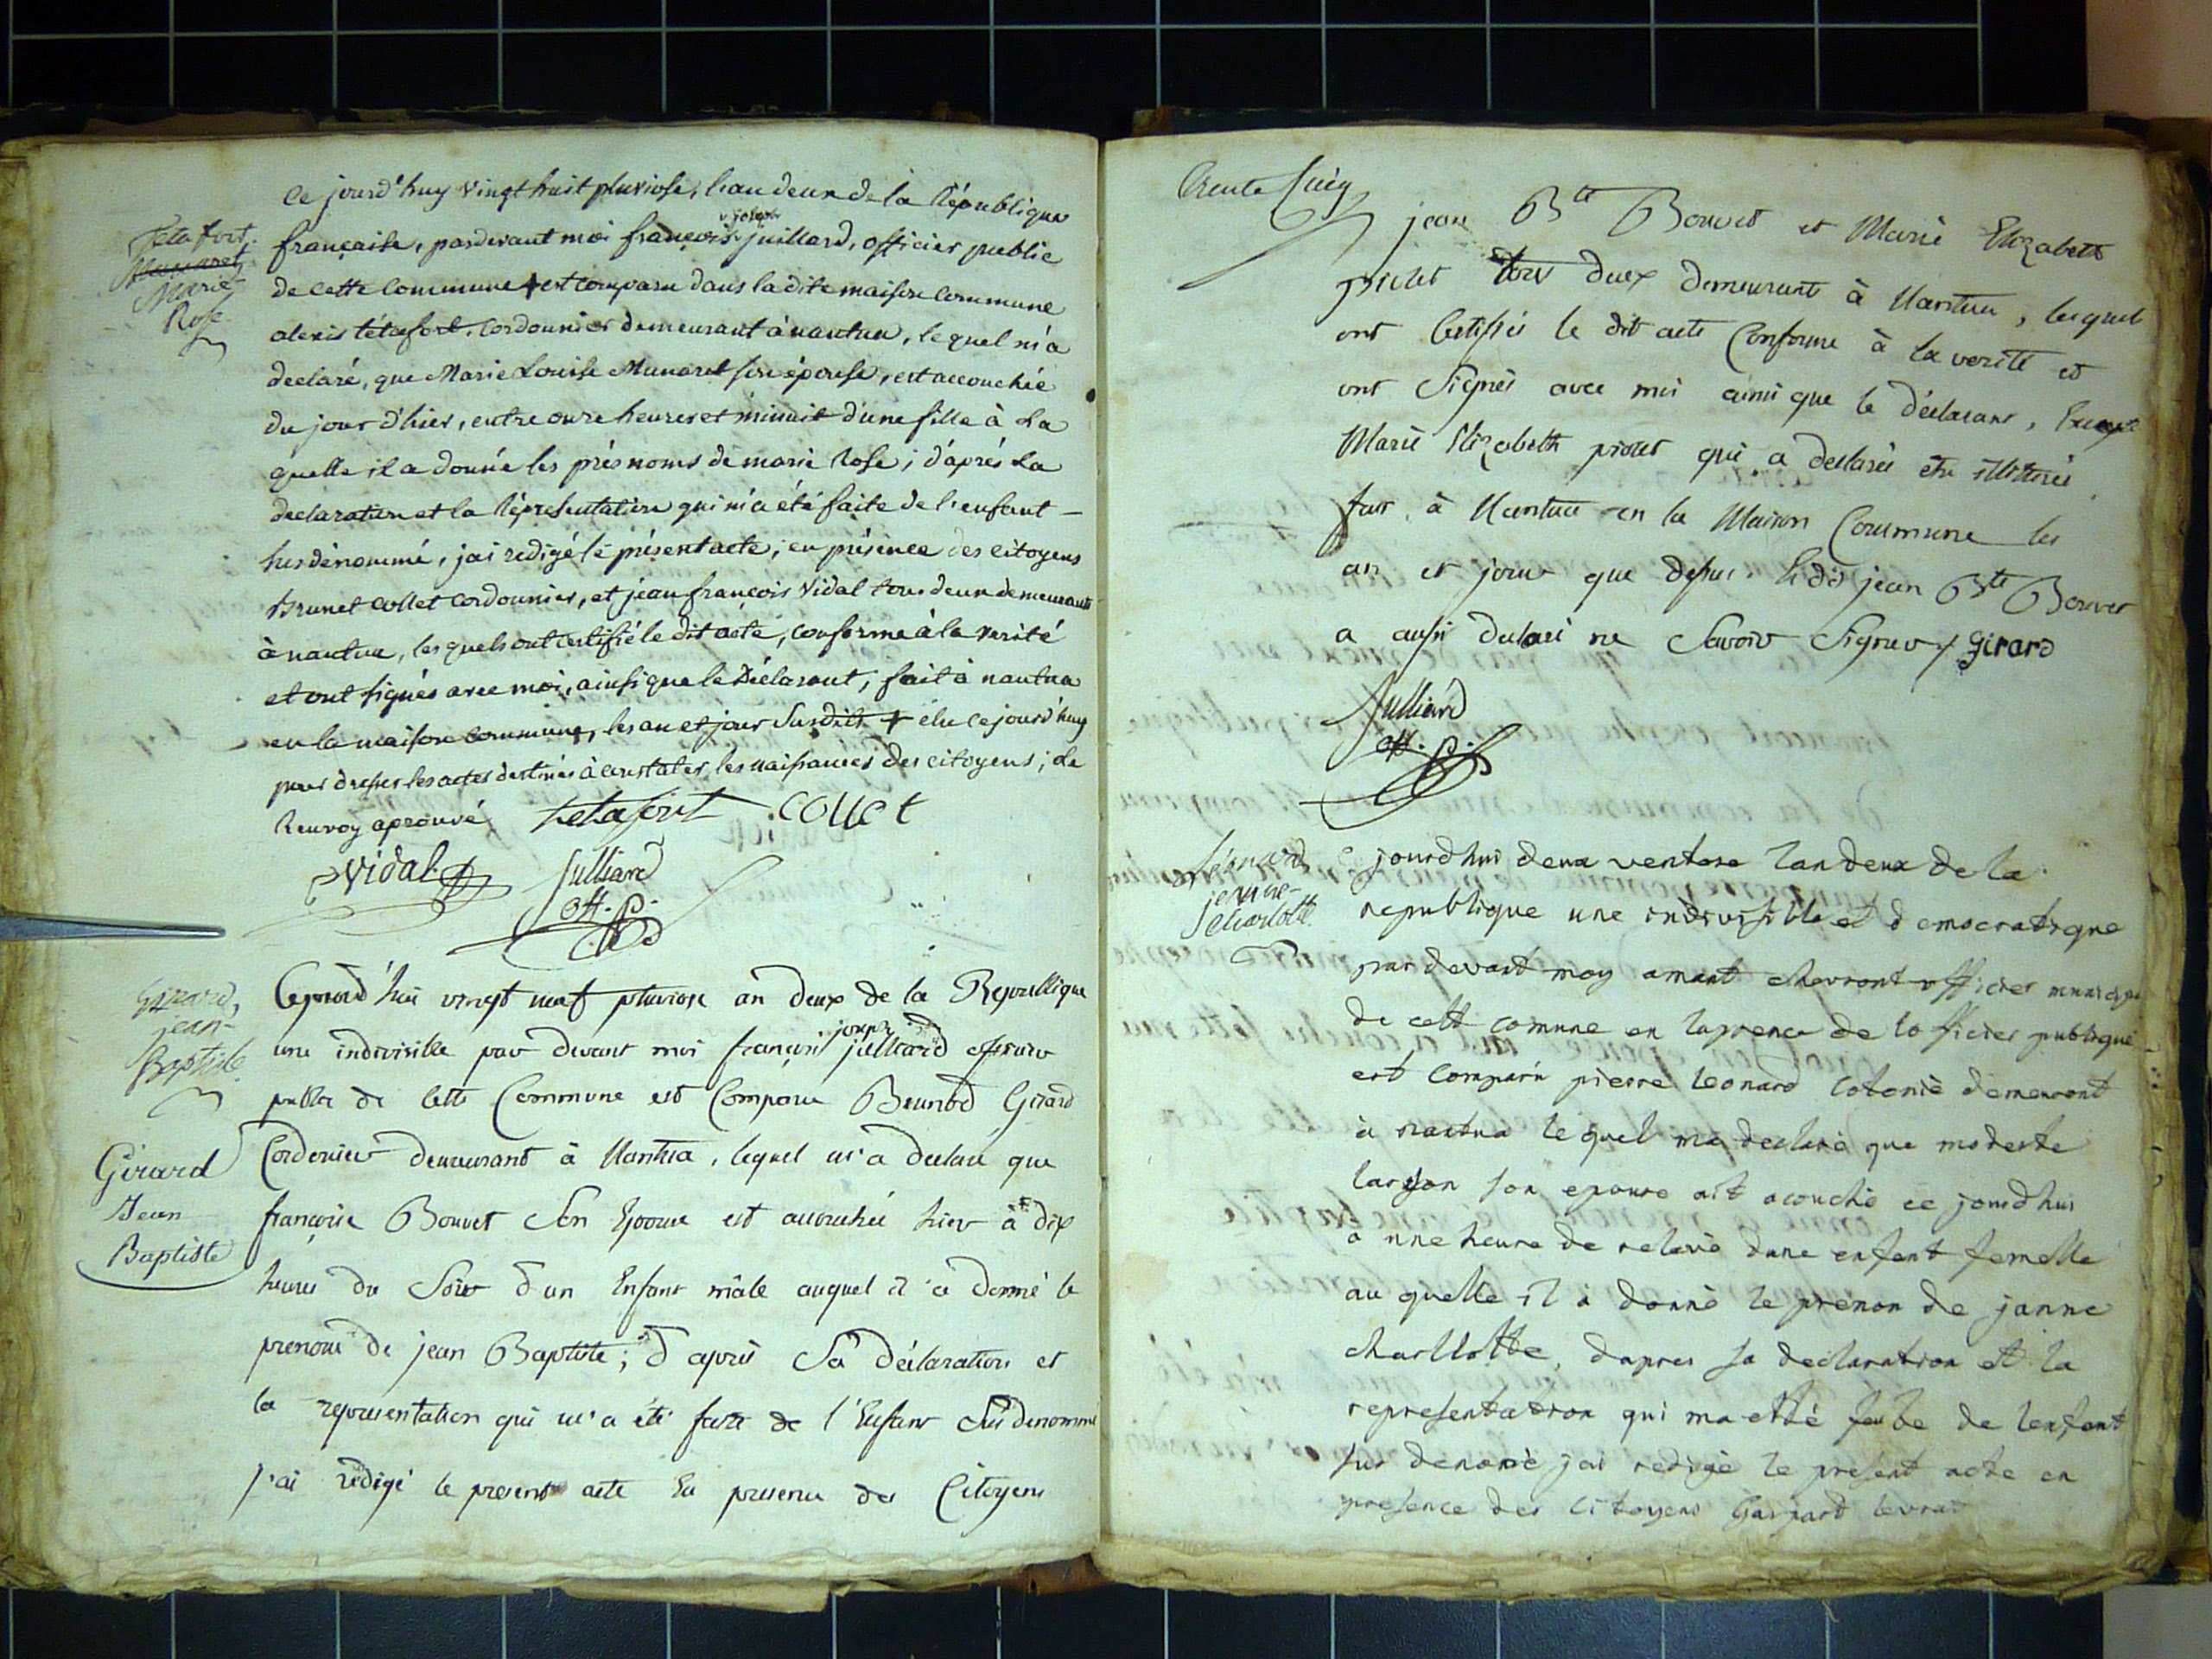 Ce jourd'huy vingt huit pluviose, l'an deux de la République
Tetafort
Munaret
Marie
Rose
française, pardevant moi françois joseph juillard, officier public
de cette commune + est comparu dans la dite maison commune
alexis tétafort, cordonnier demeurant à nantua, lequel m'a
declaré, que Marie Louise Munaret son épouse, est accouchée
du jour d'hier, entre onze heures et minuit d'une fille à La
quelle il a donné les prénoms de marie Rose; d'après La
declaration et la réprésentation qui m'a été faite de l'enfant
susdénommé, j'ai redigé le présent acte, en présence des citoyens
Brunet Collet cordonnier, et jean françois Vidal tous deux demeurants
à nantua, les quels ont certifié le dit acte, conforme à la verité
et ont signés avec moi, ainsi que le Déclarant; fait à nantua
en la maison commune, les an et jour susdits + élu ce jourd'huy
pour dresser les actes destinés à constater les naissances des citoyens; Le
Renvoy aprouvé tetafort Collet
Vidal Julliard
off. p.
Girard,
jean-
Baptiste
Girard
Jean
Baptiste
Cejourd'hui vingt neuf pluviose an deux de la Republique
une indivisible par devant moi françois joseph julliard officier
public de cette Commune est Comparu Benoid Girard
Cordonier demeurant à Nantua, lequel m'a declaré que
françoise Bouvet Son Epouse est accouchée hier à dix
heures du Soir d'un Enfant mâle auquel il a donné le
prenom de jean Baptiste; d'après Sa déclaration et
la representation qui m'a été faite de l'Enfant Sus denommé
j'ai rédigé le present acte En presence des Citoyens
trente Cinq
jean Bte Bouvet et Marie Elizabeth
piolet tous deux demeurants à Nantua, lesquels
ont Certifiés le dit acte Conforme à la verité et
ont Signés avec moi ainsi que le déclarant, Excepté
Marie Elizabeth piolet qui a declaré etre illitérée
fait à Nantua en la Maison Commune les
an et jour que dessus. Ledit jean Bte Bouvet
a aussi declaré ne Savoir Signer / Girard
Julliard
off. p.
Léonard
jeanne-
charlotte
Ce jourdhui deux ventose lan deux de la
republique une indivisible et democratique
par devant moy amant chevront officier municipal
de cett comune en laprence de lofficier publique
est Comparu pierre leonard cotonié demeurant
à nantua le quel ma declaré que modeste
larson son epouse ait acouché ce jourdhui
a une heure de relevé dune enfent femelle
au quelle il a donné le prenon de janne
charllotte, dapres sa declaration et la
representation qui ma etté faite de lenfant
sus denomé jai redigé le present acte en
presence des Citoyens Gaspard levrat